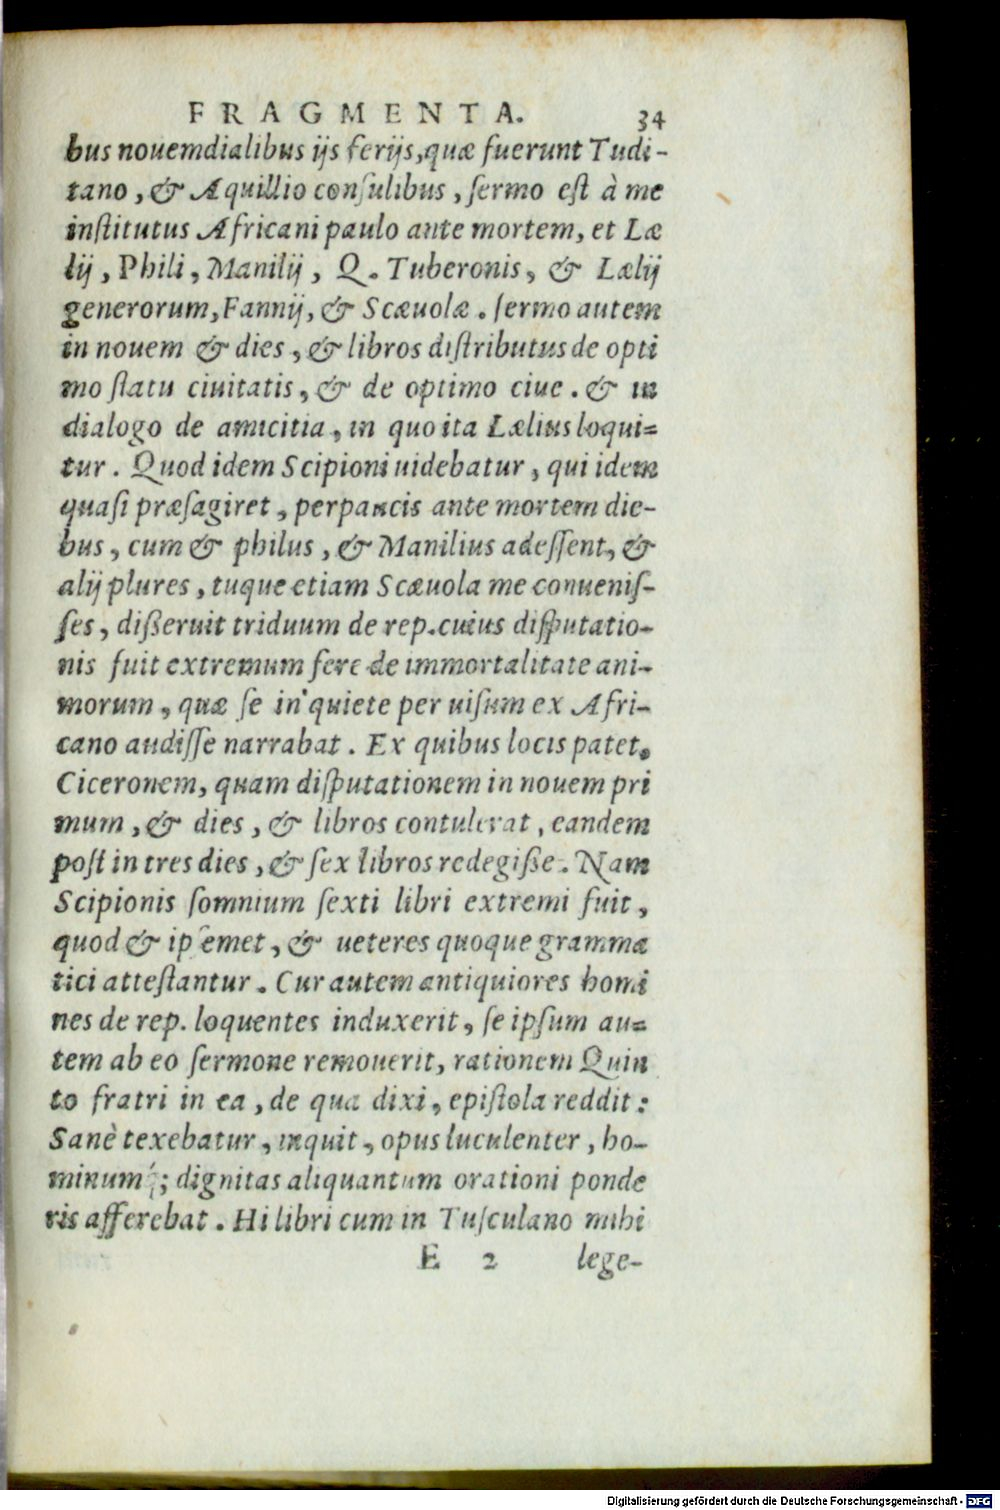 FRAGMENTA. 34
bus nouemdialibus ijs ferijs, quæ fuerunt Tudi-
tano, & Aquillio consulibus, sermo est à me
institutus Africani paulo ante mortem, et Læ
lij, Phili, Manilij, Q. Tuberonis, & Lælij
generorum, Fannij, & Scæuolæ. sermo autem
in nouem & dies, & libros distributus de opti
mo statu ciuitatis, & de optimo ciue. & in
dialogo de amicitia, in quo ita Lælius loqui=
tur. Quod idem Scipioni uidebatur, qui idem
quasi præsagiret, perpaucis ante mortem die-
bus, cum & philus, & Manilius adessent, &
alij plures, tuque etiam Scæuola me conuenis-
ses, dißeruit triduum de rep. cuius disputatio-
nis fuit extremum fere de immortalitate ani-
morum, quæ se in quiete per uisum ex Afri-
cano audisse narrabat. Ex quibus locis patet,
Ciceronem, quam disputationem in nouem pri
mum, & dies, & libros contulerat, eandem
post in tres dies, & sex libros redegiße. Nam
Scipionis somnium sexti libri extremi fuit,
quod & ipsemet, & ueteres quoque gramma
tici attestantur. Cur autem antiquiores homi
nes de rep. loquentes induxerit, se ipsum au=
tem ab eo sermone remouerit, rationem Quin
to fratri in ea, de qua dixi, epistola reddit:
Sanè texebatur, inquit, opus luculenter, ho-
minumq́; dignitas aliquantum orationi ponde
ris afferebat. Hi libri cum in Tusculano mihi
E 2 lege-
Digitalisierung gefördert durch die Deutsche Forschungsgemeinschaft - DFG